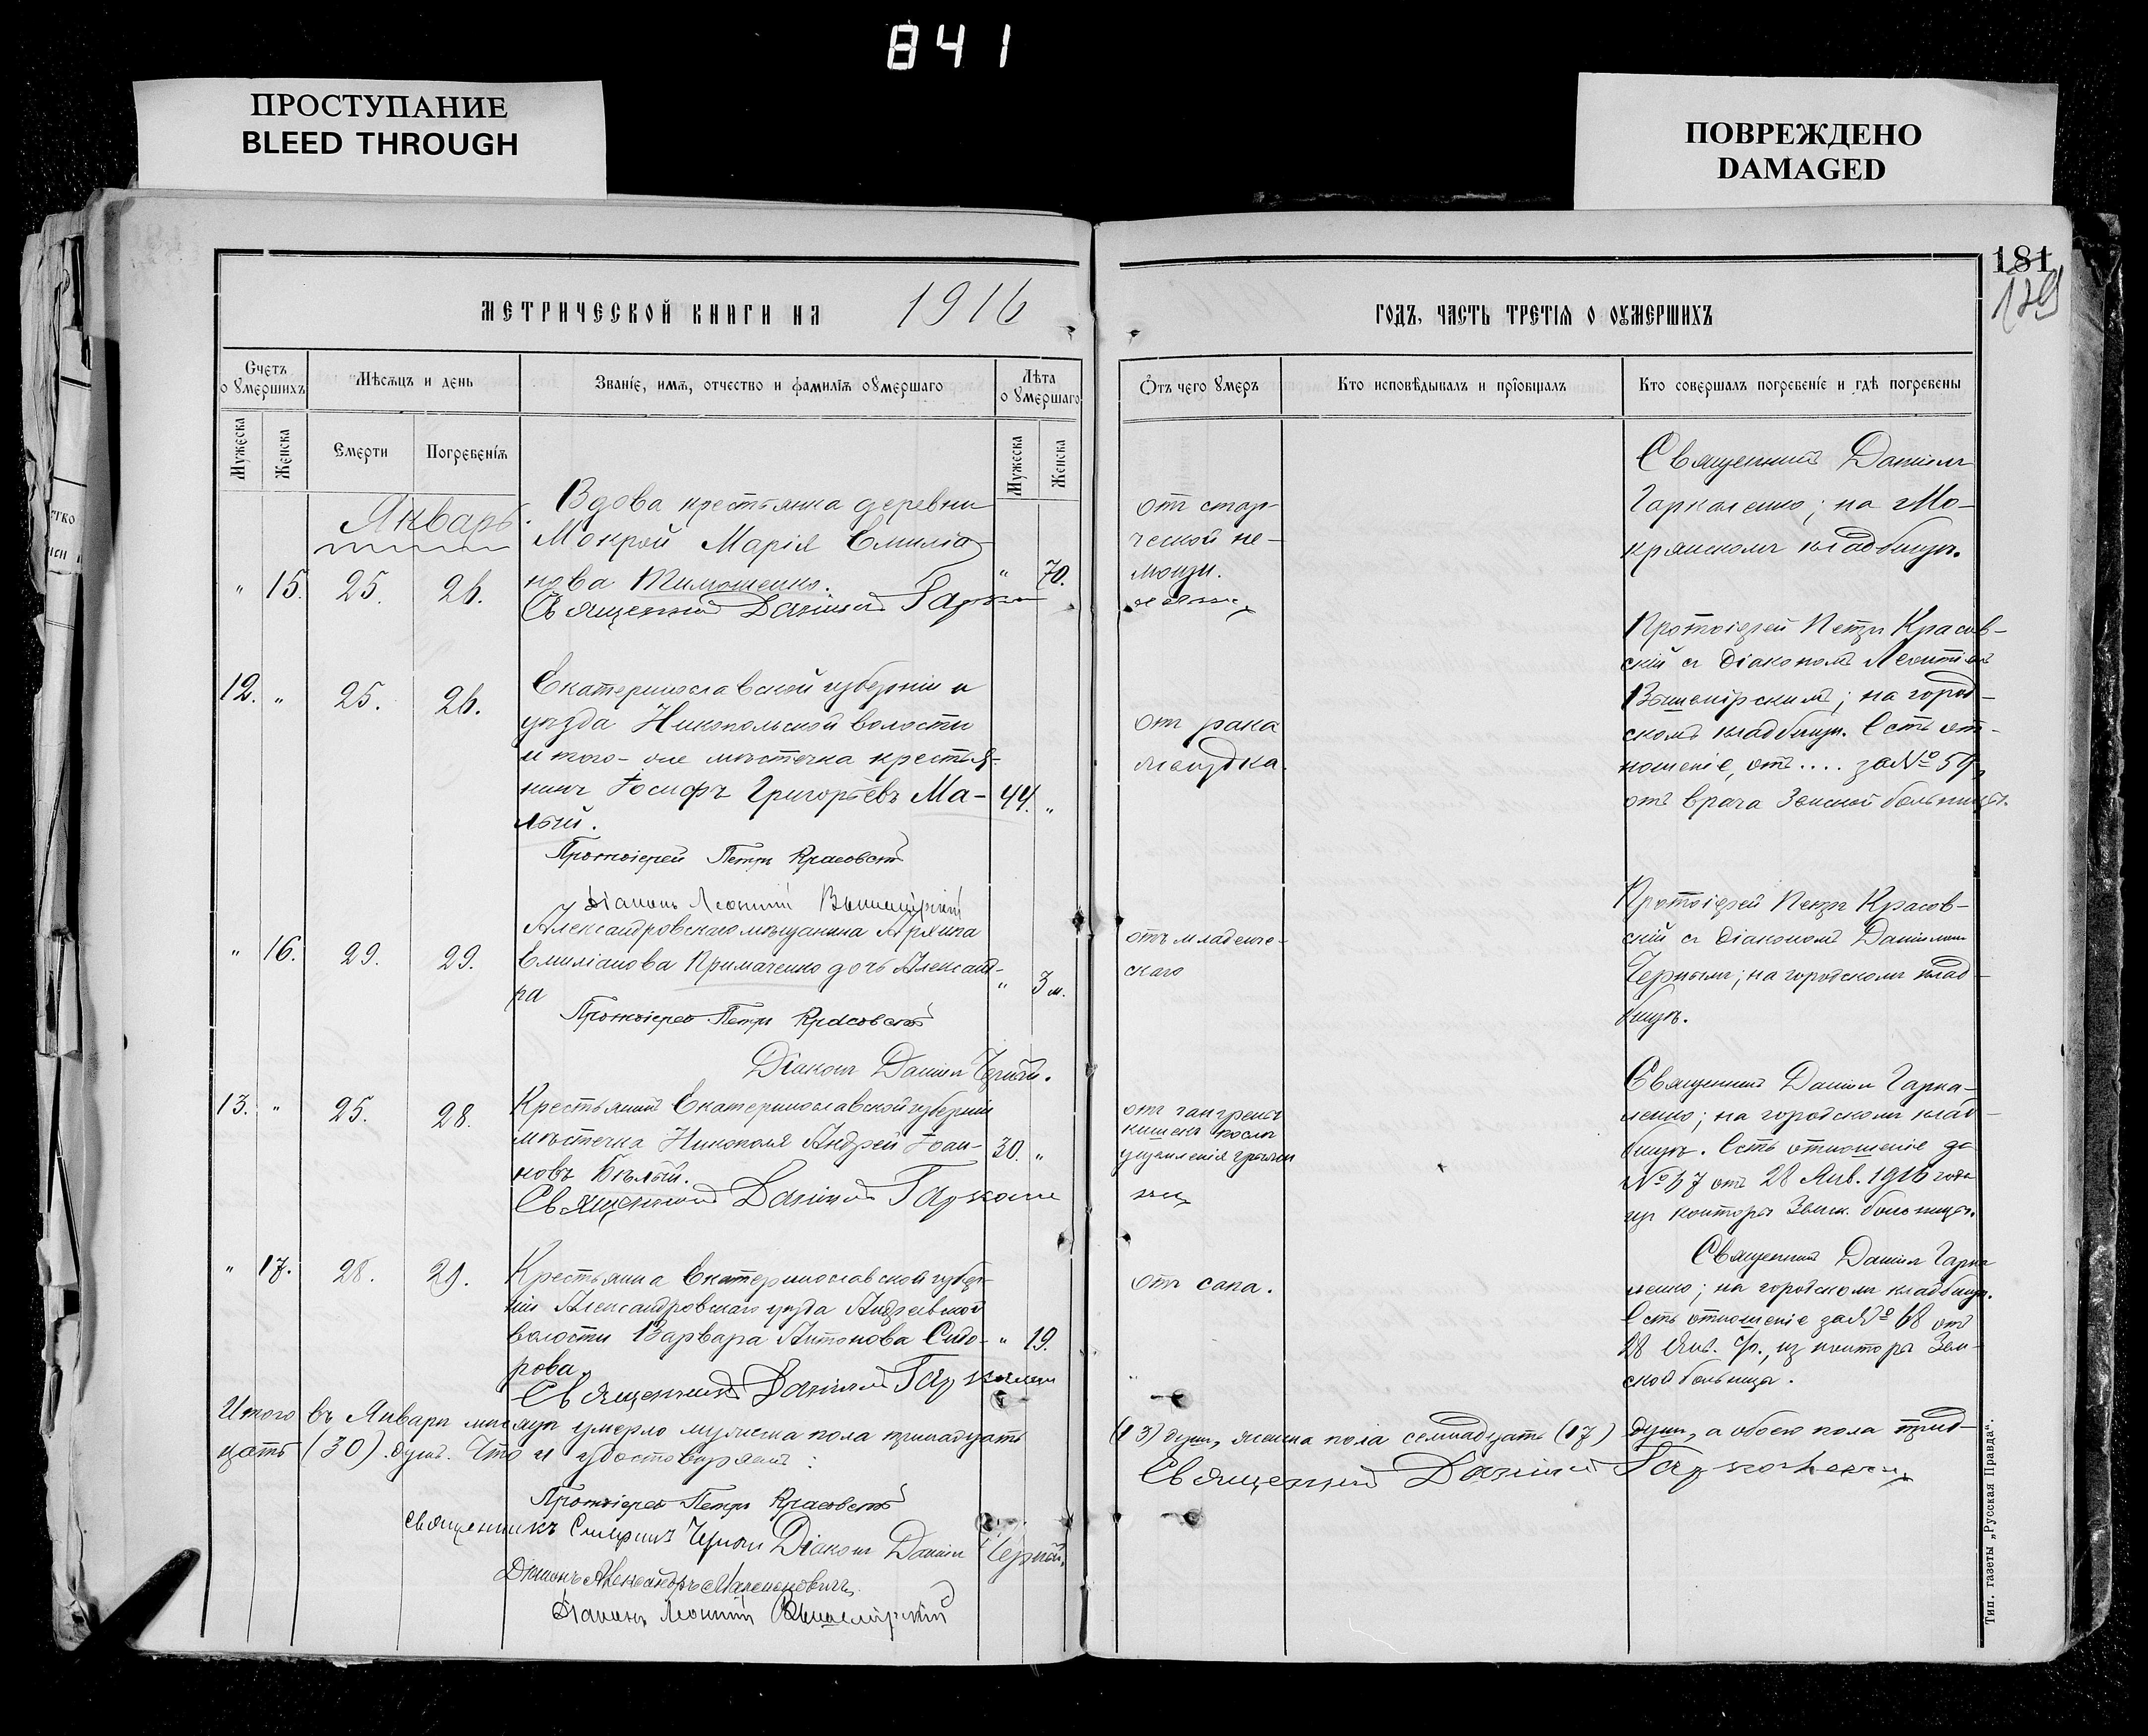 841
ПРОСТУПАНИЕ
BLEED THROUGH
ПОВРЕЖДЕНО
DAMAGED
181
179
МЕТРИЧЕСКОЙ КНИГИ НА 1916
ГОДЪ, ЧАСТЬ ТРЕТІЯ О ОУМЕРШИХЪ
Счетъ о умершихъ
Мѣсяцъ и день
Званіе, имя, отчество и фамилія оумершаго
Лѣта о умершаго
Отъ чего умеръ
Кто исповѣдывалъ и пріобщалъ
Кто совершалъ погребеніе и гдѣ погребены
Мужеска
Женска
Смерти
Погребенія
Мужеска
Женска
Январь.
Вдова крестьянка деревни
Мокрой Марія Емиліа-
нова Тимошенко.
" 15. 25. 26. " 70.
Священникъ Даніилъ Гарка
отъ стар-
ческой не-
мощи.
ленко
Священникъ Даніилъ
Гаркаленко; на Мо-
крянскомъ кладбищѣ.
12. " 25. 26.
Екатеринославской губерніи и
уѣзда Никопольской волости
и того-же мѣстечка крестья-
нинъ Іосифъ Григорьевъ Ма-
лый.
44. "
Протоіерей Петръ Красовскій
Діаконъ Леонтій Вышемірскій
отъ рака
желудка.
Протоіерей Петръ Красов-
скій съ діакономъ Леонтіемъ
Вышемірскимъ; на город-
скомъ кладбищѣ. Есть от-
ношеніе, отъ .... за № 59,
отъ врача Земской больницы.
" 16. 29. 29.
Александровскаго мѣщанина
Емиліанова Примаченко дочь Александ-
ра
" 3 м.
Протоіерей Петръ Красовскій
Діаконъ Даніилъ Черный.
отъ младенче-
скаго
Протоіерей Петръ Красов-
скій съ діакономъ Даніиломъ
Чернымъ; на городскомъ клад-
бищѣ.
13. " 25. 28.
Крестьянинъ Екатеринославской губерніи
мѣстечка Никополя Андрей Іоан-
новъ Бѣлый.
30. "
Священникъ Даніилъ Гаркале
отъ гангрены
кишекъ послѣ
ущемленія грыжи
нко
Священникъ Даніилъ Гарка-
ленко; на городскомъ клад-
бищѣ. Есть отношеніе за
№ 67 отъ 28 Янв. 1916 года
изъ конторы Земск. больницы.
" 17. 28. 29.
Крестьянка Екатеринославской губер-
ніи Александровскаго уѣзда Андреевской
волости Варвара Антонова Сидо-
рова.
" 19.
Священникъ Даніилъ Гаркаленко
отъ сапа.
Священникъ Даніилъ Гарка
ленко; на городскомъ кладбищѣ.
Есть отношеніе за № 68 отъ
28 Янв. с/г., изъ конторы Зем-
ской больницы.
Итого въ Январѣ мѣсяцѣ умерло мужеска пола тринадцать
(13) душъ, женска пола семнадцать (17) душъ, а обоего пола трид-
цать (30) душъ. Что и удостовѣряемъ:
Священникъ Даніилъ Гаркаленко
Протоіерей Петръ Красовскій
Священникъ Чернай Діаконъ Даніилъ Черный.
Діаконъ Александръ
Діаконъ Леонтій Вышемірскій
Тип. газеты „Русская Правда".